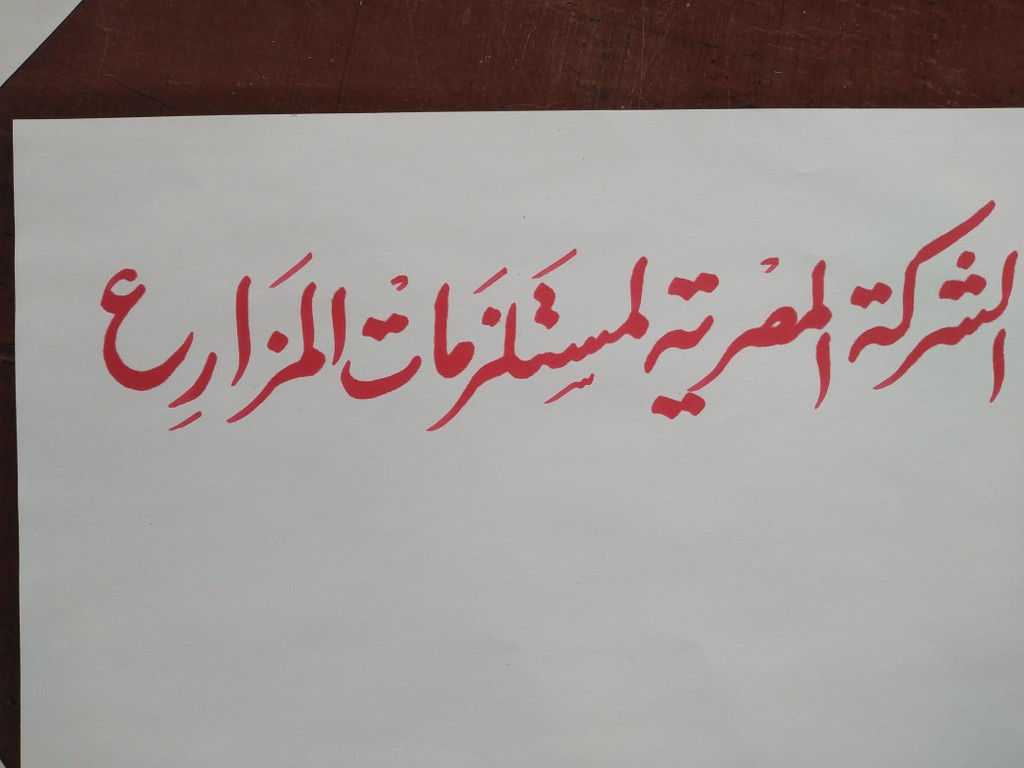 الشركة المصرية لمستلزمات المزارع